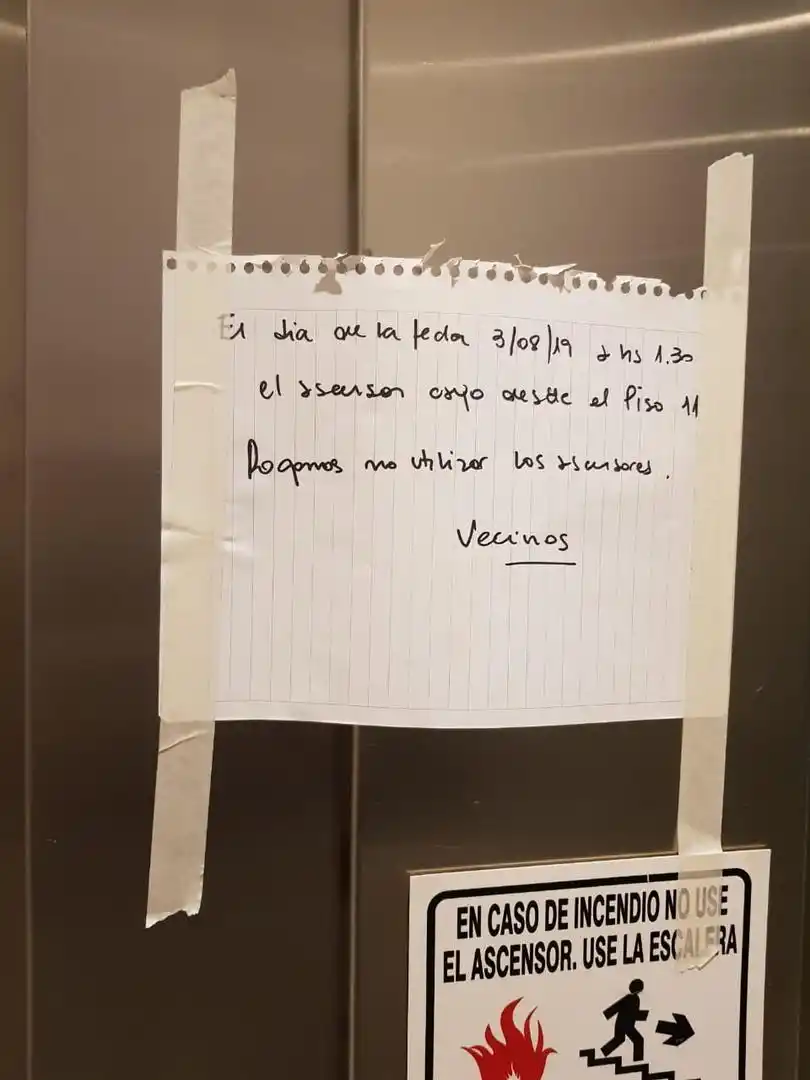 El dia de la fecha 3/08/19 a hs 1.30
el ascensor cayo desde el Piso 11
Rogamos no utilizar los ascensores.
Vecinos
EN CASO DE INCENDIO NO USE
EL ASCENSOR. USE LA ESCALERA